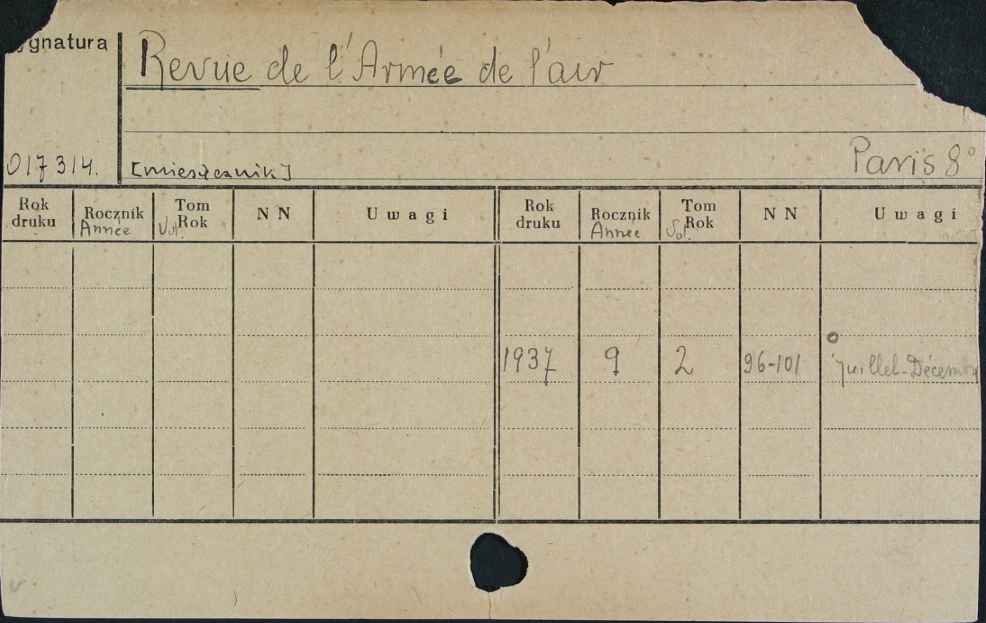 ygnatura
Revue de l'Armée de l'air
017314. [miesięcznik] Paris 8°
Rok druku Rocznik Année Tom Rok Vol. N N Uwagi Rok druku Rocznik Année Tom Rok Vol. N N Uwagi
1937 9 2 96-101 Juillet-Décembre